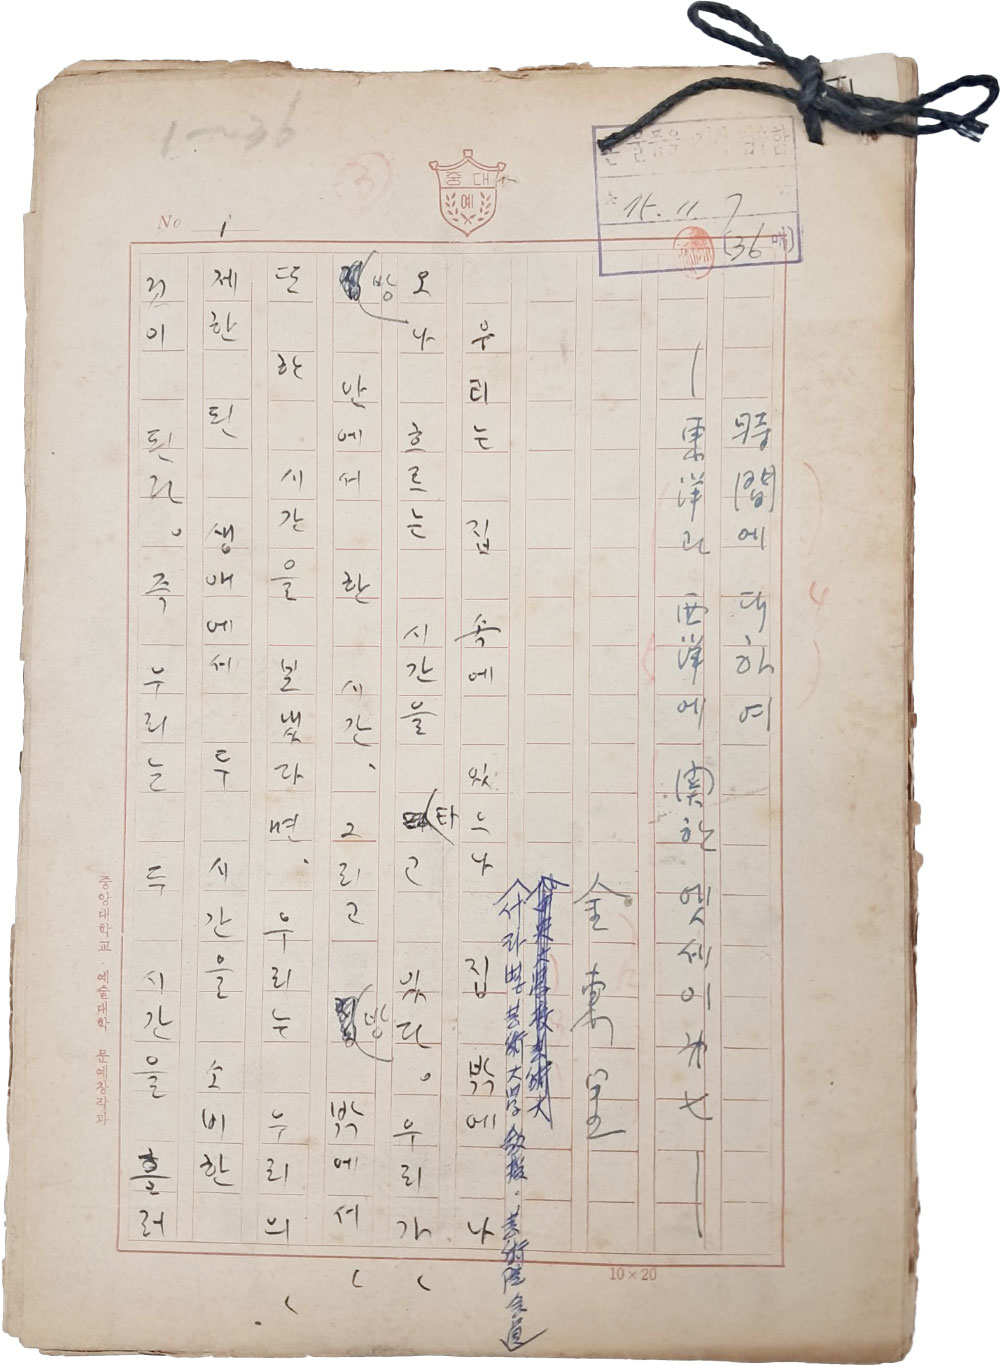 1~36
중대
예
No 1
75. 11. 7
(36매)
時間에 대하여
— 東洋과 西洋에 関한 엣세이 第七 —
金東里
서라벌芸術大学 教授. 芸術院会員
우리는 집 속에 있으나 집 밖에 나
오나 흐르는 시간을 타고 있다. 우리가
방 안에서 한 시간, 그리고 방 밖에서
또 한 시간을 보냈다면, 우리는 우리의
제한 된 생애에서 두 시간을 소비한
것이 된다. 즉 우리는 두 시간을 흘러
중앙대학교 예술대학 문예창작과
10×20